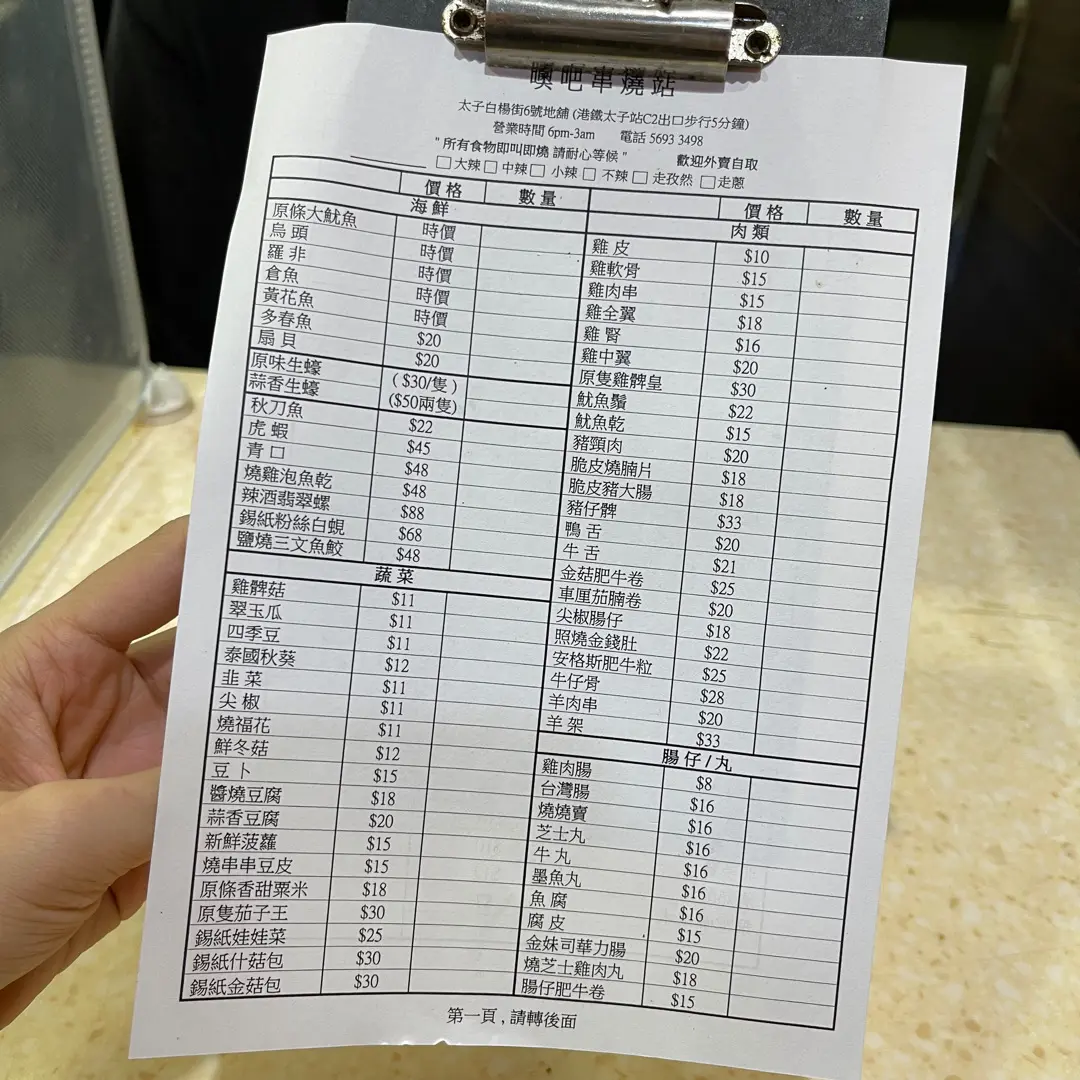 噢吧串燒站
太子白楊街6號地舖 (港鐵太子站C2出口步行5分鐘)
營業時間 6pm-3am 電話 5693 3498
" 所有食物即叫即燒 請耐心等候 " 歡迎外賣自取
□大辣 □中辣 □小辣 □不辣 □走孜然 □走蔥
價格 數量
海鮮
原條大魷魚 時價
烏頭 時價
羅非 時價
倉魚 時價
黃花魚 時價
多春魚 $20
扇貝 $20
原味生蠔 ( $30/隻 )
蒜香生蠔 ($50兩隻)
秋刀魚 $22
虎蝦 $45
青口 $48
燒雞泡魚乾 $48
辣酒翡翠螺 $88
錫紙粉絲白蜆 $68
鹽燒三文魚鮫 $48
蔬菜
雞髀菇 $11
翠玉瓜 $11
四季豆 $11
泰國秋葵 $12
韭菜 $11
尖椒 $11
燒福花 $11
鮮冬菇 $12
豆卜 $15
醬燒豆腐 $18
蒜香豆腐 $20
新鮮菠蘿 $15
燒串串豆皮 $15
原條香甜粟米 $18
原隻茄子王 $30
錫紙娃娃菜 $25
錫紙什菇包 $30
錫紙金菇包 $30
價格 數量
肉類
雞皮 $10
雞軟骨 $15
雞肉串 $15
雞全翼 $18
雞腎 $16
雞中翼 $20
原隻雞髀皇 $30
魷魚鬚 $22
魷魚乾 $15
豬頸肉 $20
脆皮燒腩片 $18
脆皮豬大腸 $18
豬仔髀 $33
鴨舌 $20
牛舌 $21
金菇肥牛卷 $25
車厘茄腩卷 $20
尖椒腸仔 $18
照燒金錢肚 $22
安格斯肥牛粒 $25
牛仔骨 $28
羊肉串 $20
羊架 $33
腸仔/丸
雞肉腸 $8
台灣腸 $16
燒燒賣 $16
芝士丸 $16
牛丸 $16
墨魚丸 $16
魚腐 $16
腐皮 $15
金妹司華力腸 $20
燒芝士雞肉丸 $18
腸仔肥牛卷 $15
第一頁 , 請轉後面